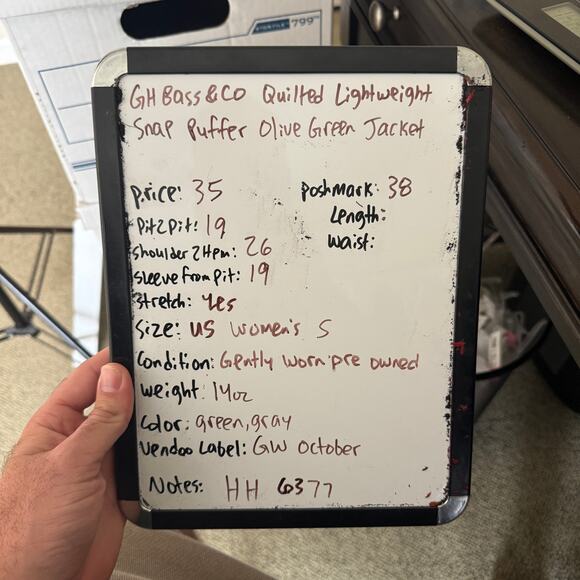 STOR/FILE™ 799
GH Bass & Co Quilted Lightweight
Snap Puffer Olive Green Jacket
price: 35
poshmark: 38
Length:
waist:
Pit2Pit: 19
Shoulder2Hem: 26
Sleeve from pit: 19
Stretch: Yes
Size: US Women's S
Condition: Gently worn pre owned
weight: 14oz
Color: green, gray
Vendoo Label: GW October
Notes: HH 6377